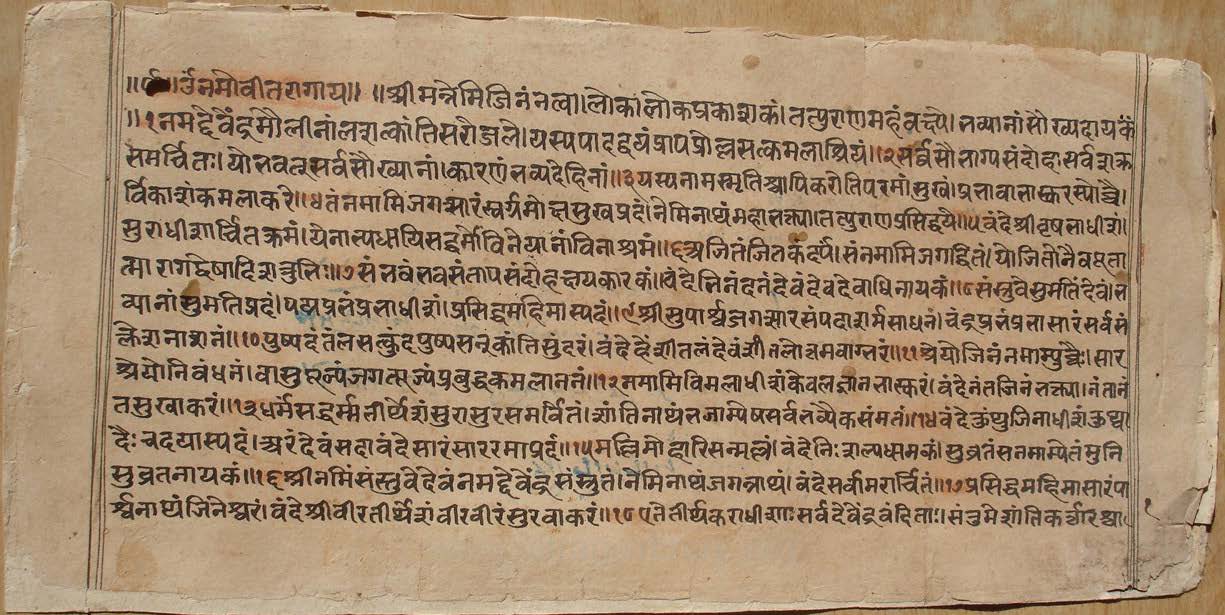 ॥ॐनमोवीतरागाय॥ ॥श्रीमन्नेमिजिनंनत्वा।लोकालोकप्रकाशकं।तत्पुराणमहंवक्ष्ये।भव्यानांसौख्यदायकं
॥१नमद्देवेंद्रमौलीनांलशत्कांतिसरोजले।यस्यपादद्वयंप्रापप्रोल्लसत्कमलाश्रियं।२सर्वसौभाग्यसंदोहःसर्वशक्र
समर्चितः।योभवत्सर्वसौख्यानां।कारणंभव्यदेहिनां॥३यस्यनामस्मृतिश्चापिकरोतिपरमांसुखं।प्रभावाभास्करस्योच्चै।
र्विकाशंकमलाकरे॥४तंनमामिजगत्सारंस्वर्गमोक्षसुखप्रदं।नेमिनाथंमहाभक्त्या।तत्पुराणप्रसिद्धये॥५वंदेश्रीवृषभाधीशं।
सुराधीशार्चितक्रमं।येनात्रप्रथायिसद्धर्मोविनेयानांविनाश्रमं॥६अजितंजितकंदर्पं।संनमामिजगद्धितं।योजितोनैवधूता
त्मारागद्वेषादिशत्रुभिः॥७संभवंभवसंतापसंदोहक्षयकारकं।वंदेभिनंदनंदेवंदेवदेवाधिनायकं॥८संस्तुवेसुमतिंदेवं।भ
व्यानांसुमतिप्रदं।पद्मप्रभंप्रभाधीशं।प्रसिद्धमहिमास्पदं॥९श्रीसुपार्श्वंजगत्सारसंपदाशर्मसाधनं।चंद्रप्रभंप्रभासारंसर्वसं
क्लेशनाशनं॥१०पुष्पदंतंलसत्कुंदपुष्पसनुकांतिसुंदरं।वंदेहंशीतलंदेवंशीतलोत्तमवाग्भरं॥११श्रेयोजिनंनमाम्युच्चैः।सार
श्रेयोनिबंधनं।वासुपूज्यंजगत्पूज्यंप्रबुद्धकमलाननं॥१२नमामिविमलाधीशंकेवलज्ञानभास्करं।वंदेनंतजिनंभक्त्या।नंतानं
तसुखाकरं॥१३धर्मसद्धर्म्मतीर्थेशंसुरासुरसमर्चितं।शांतिनाथंभजाम्येषसर्वभव्यैकसंमतं॥१४वंदेकुंथुजिनाधीशंकुंथ्वा
दैःचदयास्पदं।अरंदेवंसदावंदेसारंसाररमाप्रदं॥१५मल्लिंमोहारिसन्मल्लं।वंदेनिःशल्यधामकं।सुव्रतंसनमाम्येतंमुनि
सुव्रतनायकं॥१६श्रीनमिंसंस्तुवेदेवंनमद्देवेंद्रसंस्तुतं।नेमिनाथंजगन्नाथं।वंदेसर्वामरार्चितं॥१७प्रसिद्धमहिमासारंपा
र्श्वनाथंजिनेश्वरं।वंदेश्रीवीरतीर्थेशंवीरवीरंसुखाकरं॥१८एतेतीर्थकराधीशाःसर्वदेवेंद्रवंदिताः।संतुमेशांतिकर्त्तारश्चा
१